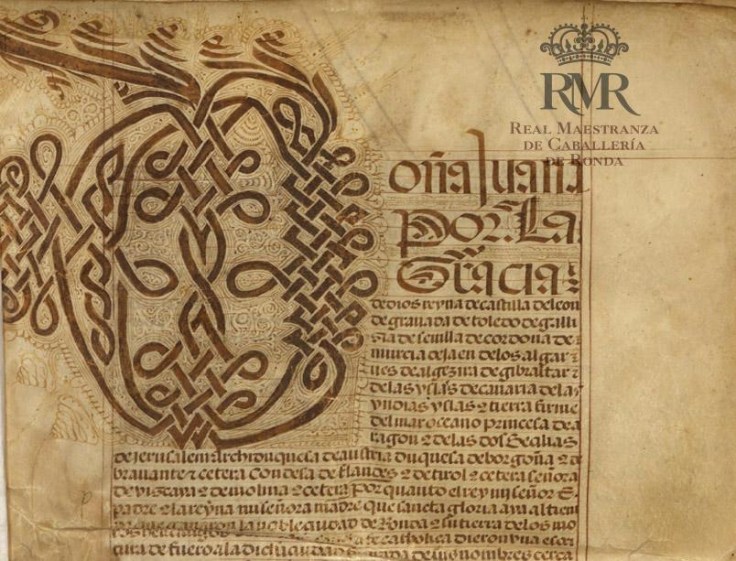 RMR
REAL MAESTRANZA
DE CABALLERÍA
DE RONDA
Doña Juana
Por La
Gracia
de dios reyna de castilla de leon
de granada de toledo de galli
sia de seuilla de cordoua de
murcia de jaen de los algar
ues de algezira de gibraltar z
de las yslas de canaria de las
yndias yslas z tierra firme
del mar oceano princesa de a
ragon z de las dos secilias
de jerusalem archiduquesa de austria duquesa de borgoña z de
brauante z cetera Condesa de flandes z de tirol z cetera señora
de viscaya z de molina z cetera Por quanto el rey mi señor z
padre z la reyna mi señora madre que sancta gloria aya al tiem
ganaron la noble ciudad de Ronda z su tierra de los mo
catholica dieron vna escri
tura de fuero a la dicha ciudad firmada de sus nombres cerca